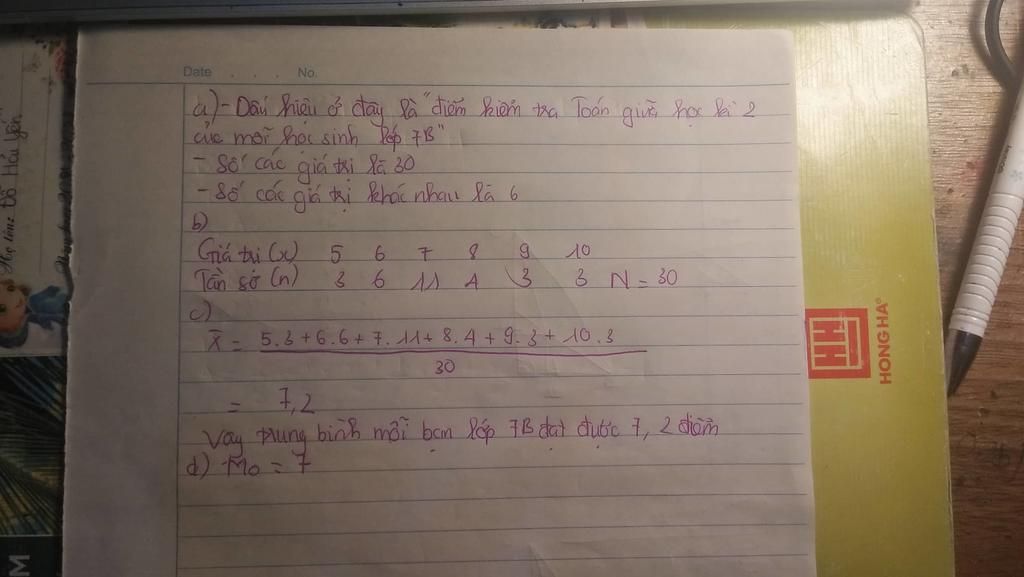 Date . . . No.
a) - Dấu hiệu ở đây là "điểm kiểm tra Toán giữa học kì 2
của mỗi học sinh lớp 7B"
- Số các giá trị là 30
- Số các giá trị khác nhau là 6
b)
Giá trị (x) 5 6 7 8 9 10
Tần số (n) 3 6 11 4 3 3 N = 30
c)
X̄ = 5.3+6.6+7.11+8.4+9.3+10.3
30
= 7,2
Vậy trung bình mỗi bạn lớp 7B đạt được 7,2 điểm
d) Mo = 7
HH
HONG HA®
Họ tên: Đỗ Hải Yến
M